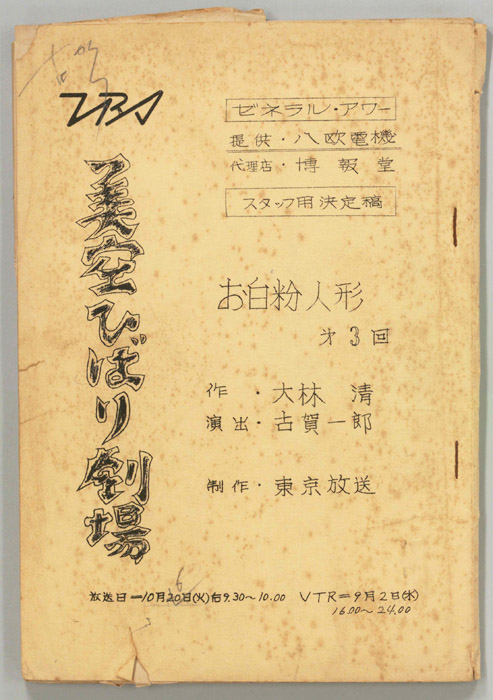 TBS
美空ひばり劇場
ゼネラル・アワー
提供・八欧電機
代理店・博報堂
スタッフ用決定稿
お白粉人形
才3回
作・大林 清
演出・古賀一郎
制作・東京放送
放送日−10月20日(火)后9.30〜10.00 VTR=9月2日(水)
16.00〜24.00